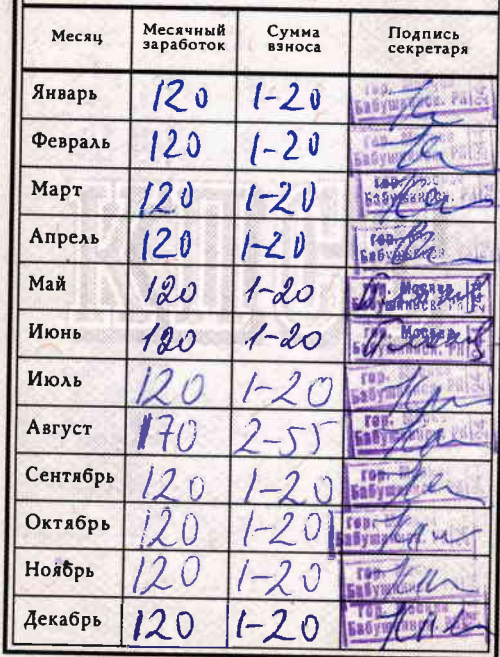 Месяц Месячный заработок Сумма взноса Подпись секретаря
Январь 120 1-20
Февраль 120 1-20
Март 120 1-20
Апрель 120 1-20
Май 120 1-20 Москва
Июнь 120 1-20 Москва
Июль 120 1-20 гор.
Август 170 2-55 гор.
Сентябрь 120 1-20 гор.
Октябрь 120 1-20 гор.
Ноябрь 120 1-20 гор.
Декабрь 120 1-20 гор. Москва